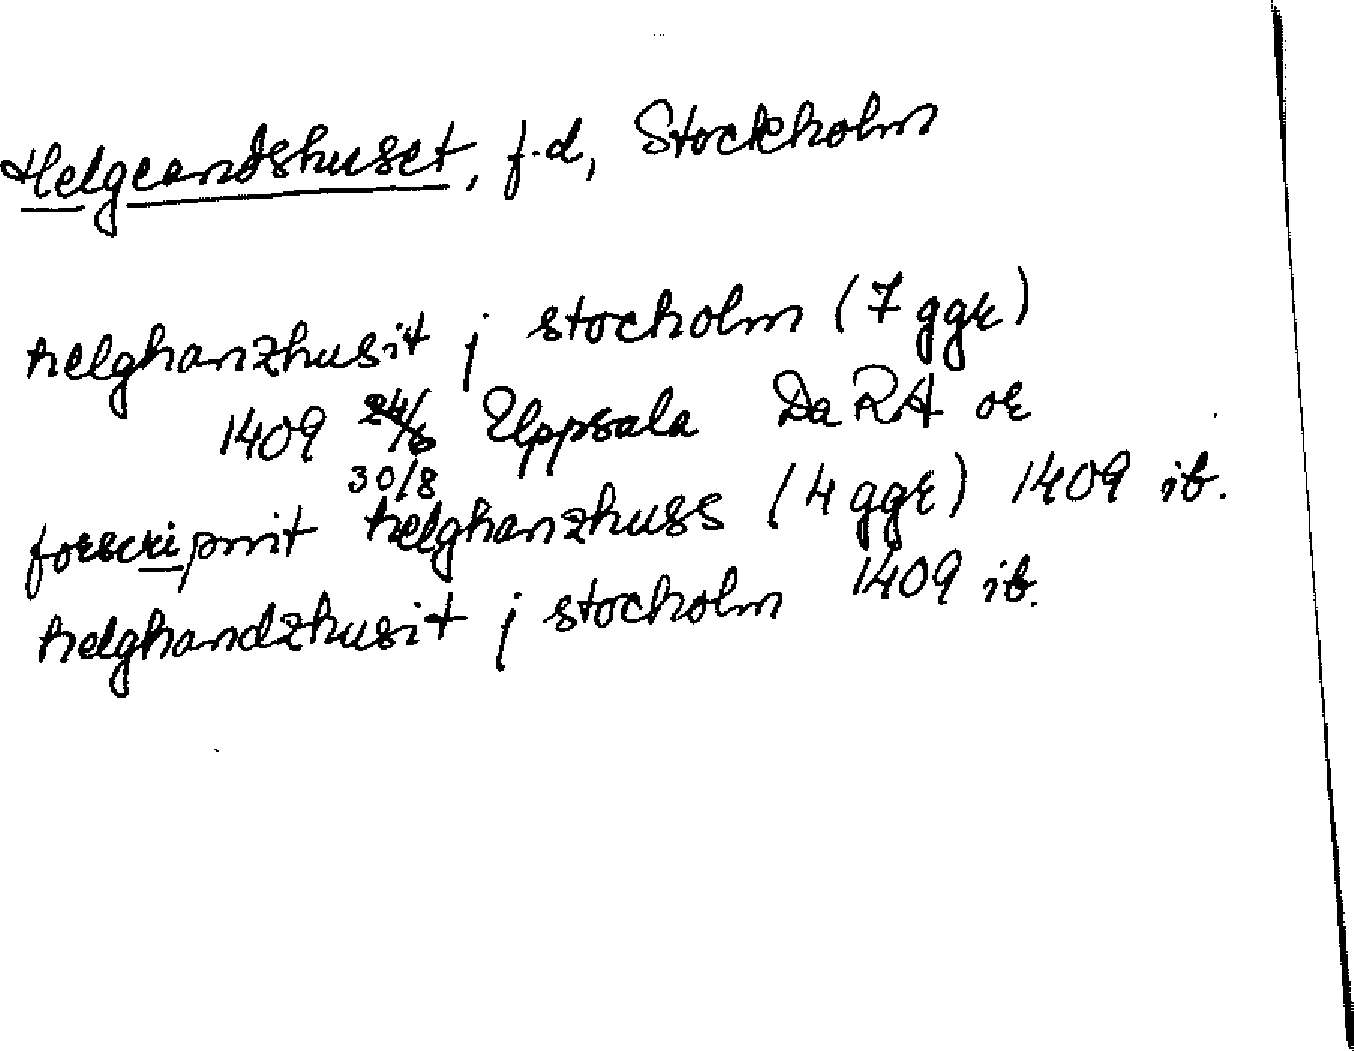 Helgeandshuset, f.d, Stockholm
helghanzhusit j stocholm (7 ggr)
1409 24/6 Uppsala Da RA or
30/8
forscripnit helghanzhuss (4 ggr) 1409 ib.
helghandzhusit j stocholm 1409 ib.